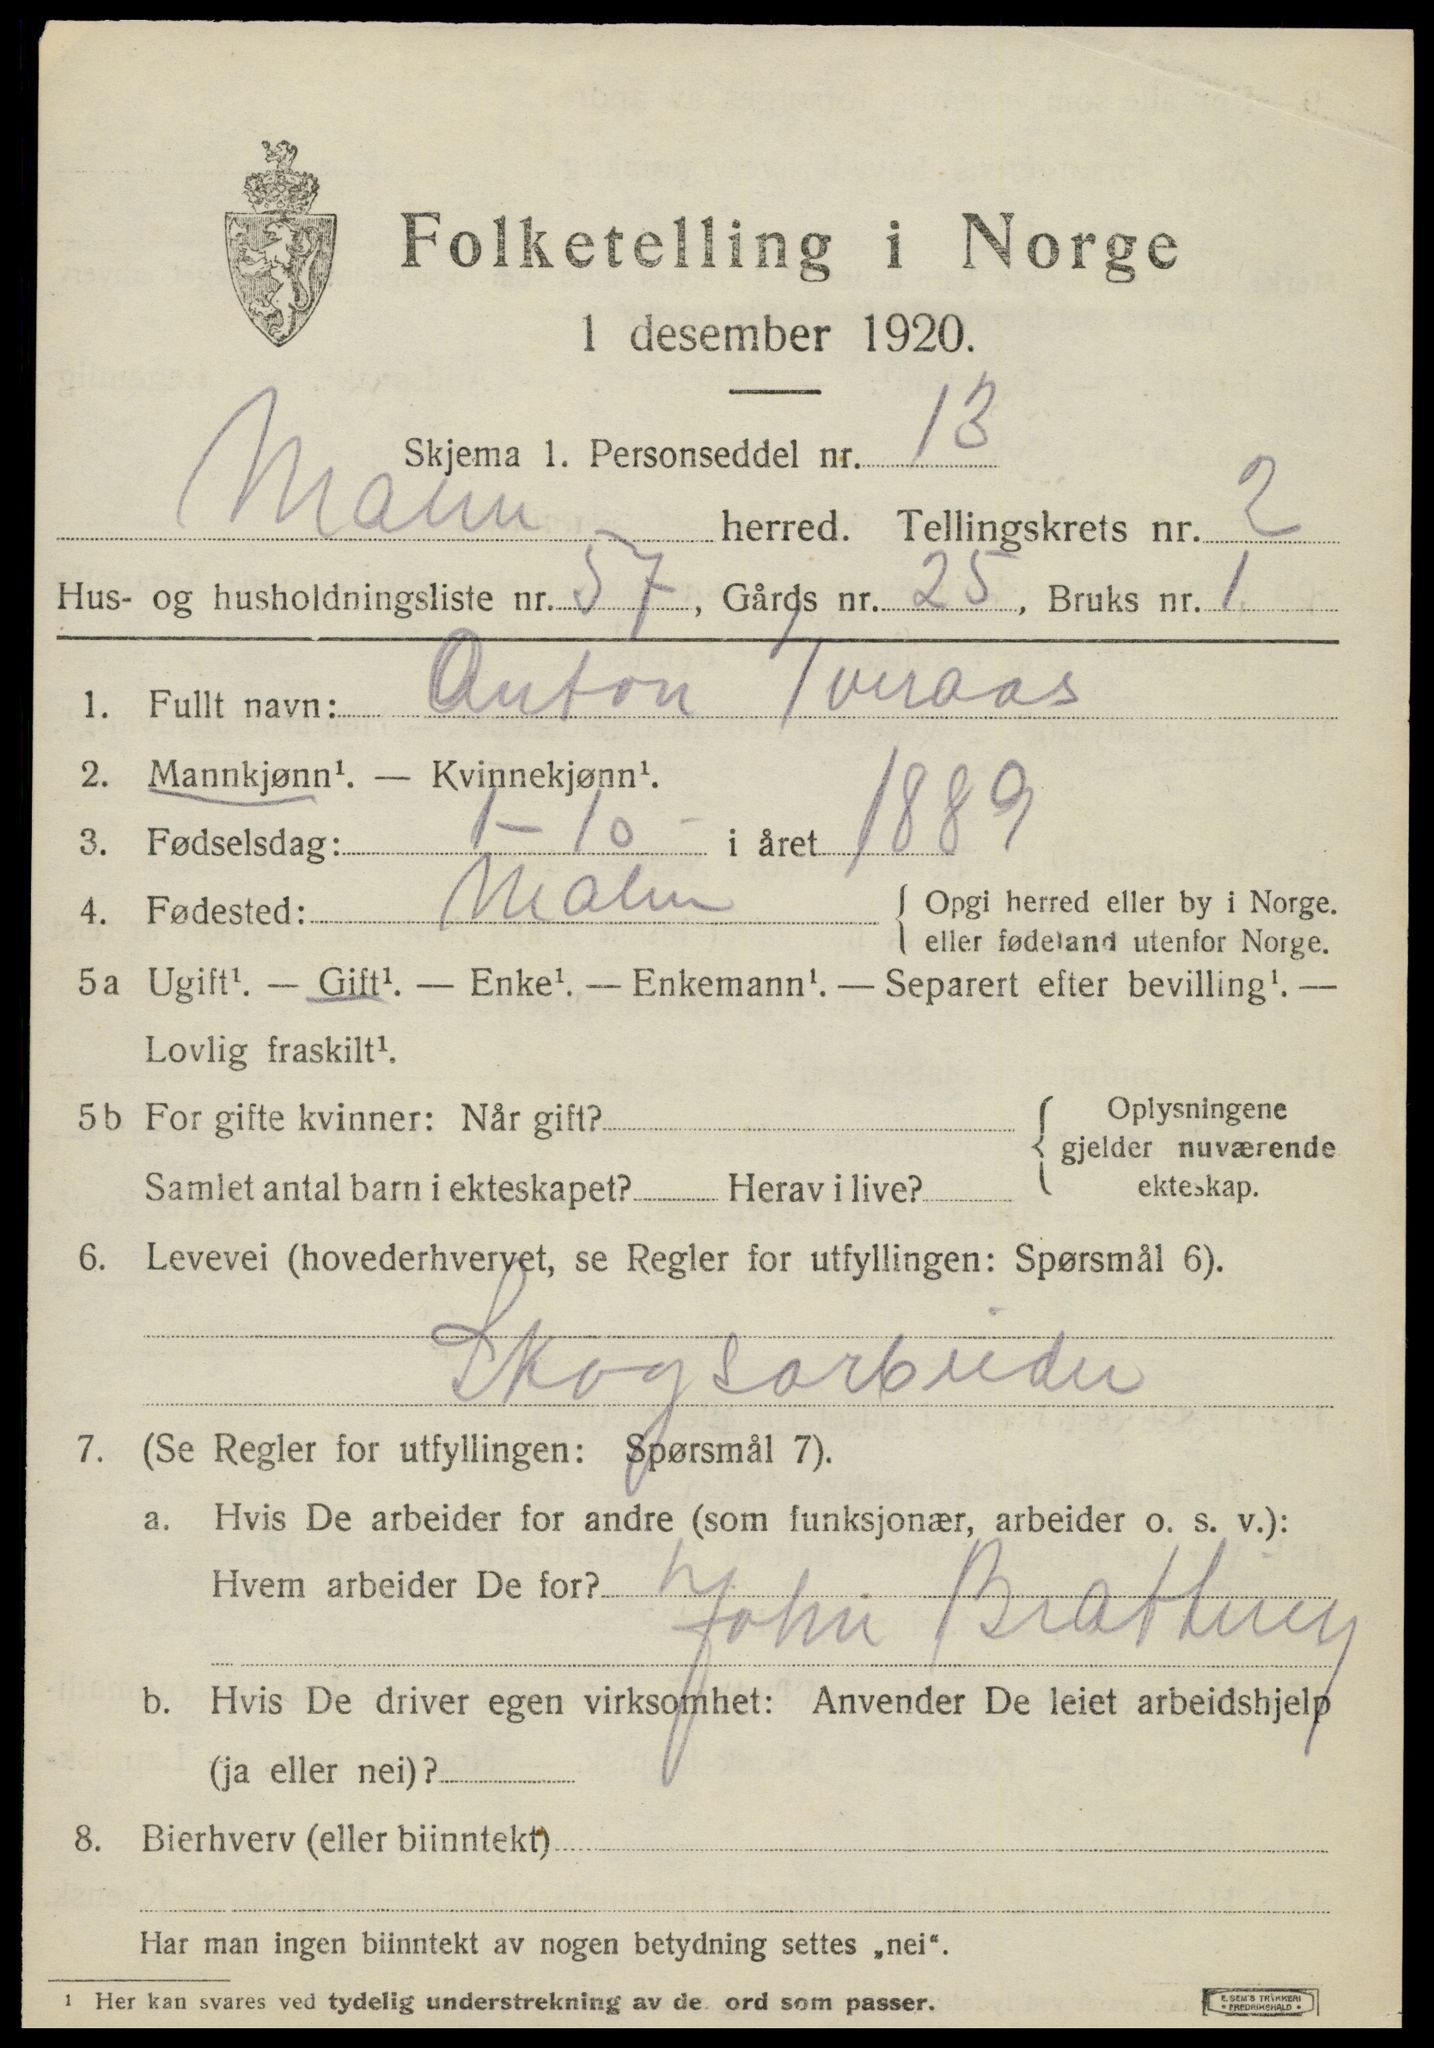 Folketelling i Norge
1 desember 1920.
Skjema 1. Personseddel nr. 13
Malm herred. Tellingskrets nr. 2
Hus- og husholdningsliste nr. 57, Gårds nr. 25, Bruks nr. 1
1. Fullt navn: Anton Tveraas
2. Mannkjønn¹. — Kvinnekjønn¹.
3. Fødselsdag: 1 - 10 - i året 1889
4. Fødested: Malm { Opgi herred eller by i Norge.
eller fødeland utenfor Norge.
5a Ugift¹. — Gift¹. — Enke¹. — Enkemann¹. — Separert efter bevilling¹. —
Lovlig fraskilt¹.
5b For gifte kvinner: Når gift? { Oplysningene
gjelder nuværende
Samlet antal barn i ekteskapet? Herav i live? ekteskap.
6. Levevei (hovederhvervet, se Regler for utfyllingen: Spørsmål 6).
Skogsarbeider
7. (Se Regler for utfyllingen: Spørsmål 7).
a. Hvis De arbeider for andre (som funksjonær, arbeider o. s. v.):
Hvem arbeider De for?
John
b. Hvis De driver egen virksomhet: Anvender De leiet arbeidshjelp
(ja eller nei)?
8. Bierhverv (eller biinntekt)
Har man ingen biinntekt av nogen betydning settes „nei“.
¹ Her kan svares ved tydelig understrekning av de ord som passer.
E. SEM'S TRYKKERI
• FREDRIKSHALD •